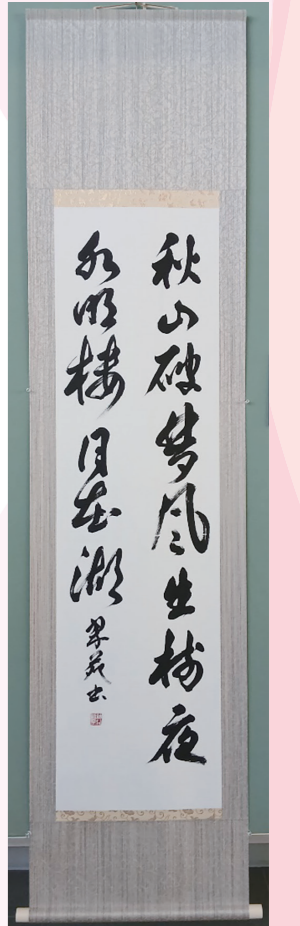 秋山破夢風生樹夜
水明楼月在湖
翠苑書